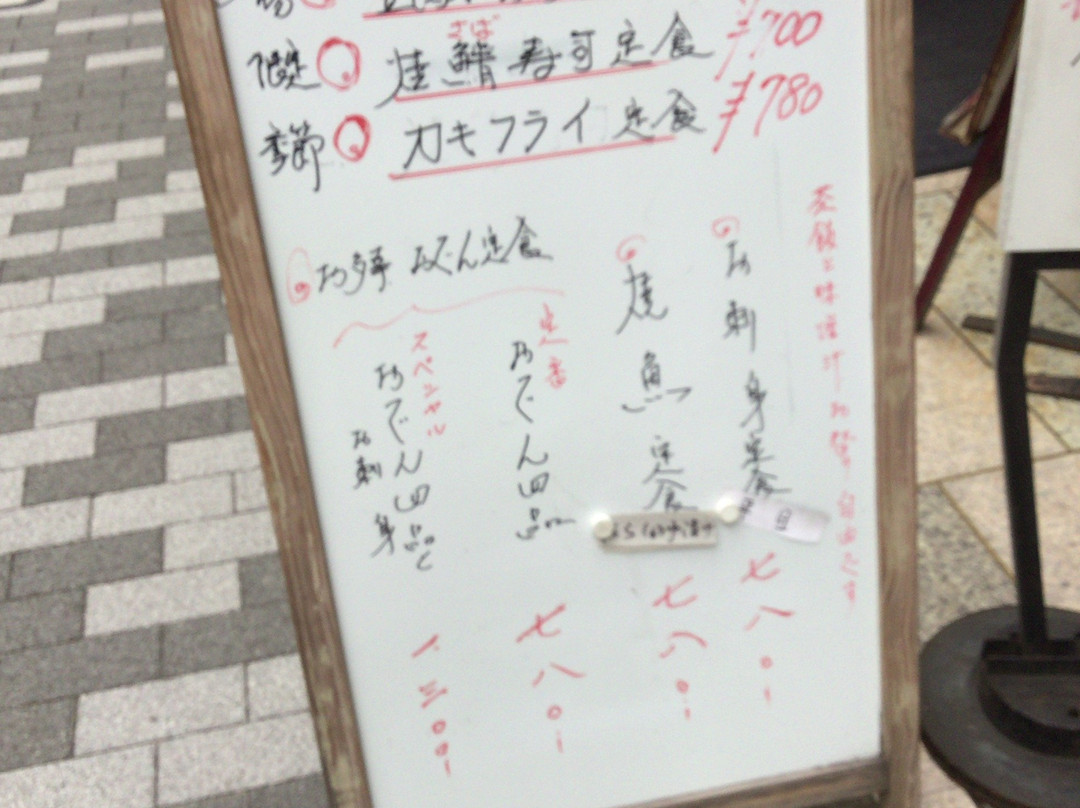 さば
限定 焼鯖寿司定食 ¥700
季節 カキフライ定食 ¥780
茶飯と味噌汁お替り自由です
お刺身定食
七八〇
焼魚定食
七八〇
お昼 おでん定食
定番
おでん四品
七八〇
スペシャル
おでん四品と
お刺身
一、三〇〇